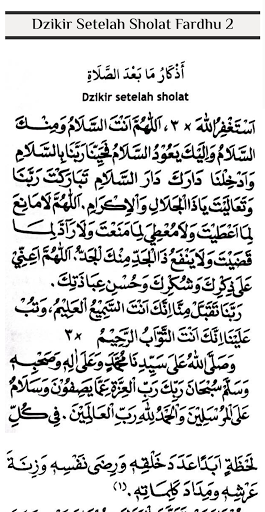 Dzikir Setelah Sholat Fardhu 2
أَذْكَارُ مَا بَعْدَ الصَّلَاةِ
Dzikir setelah sholat
اَسْتَغْفِرُ اللهَ ×٣، اَللّٰهُمَّ اَنْتَ السَّلَامُ وَمِنْكَ
السَّلَامُ وَاِلَيْكَ يَعُوْدُ السَّلَامُ فَحَيِّنَا رَبَّنَا بِالسَّلَامِ
وَاَدْخِلْنَا دَارَكَ دَارَ السَّلَامِ تَبَارَكْتَ رَبَّنَا
وَتَعَالَيْتَ يَاذَا الْجَلَالِ وَالْاِكْرَامِ. اَللّٰهُمَّ لَا مَانِعَ
لِمَا اَعْطَيْتَ وَلَا مُعْطِيَ لِمَا مَنَعْتَ وَلَا رَآدَّ لِمَا
قَضَيْتَ وَلَا يَنْفَعُ ذَا الْجَدِّ مِنْكَ الْجَدُّ. اَللّٰهُمَّ اَعِنِّيْ
عَلَى ذِكْرِكَ وَشُكْرِكَ وَحُسْنِ عِبَادَتِكَ.
رَبَّنَا تَقَبَّلْ مِنَّا اِنَّكَ اَنْتَ السَّمِيْعُ الْعَلِيْمُ، وَتُبْ
عَلَيْنَا اِنَّكَ اَنْتَ التَّوَّابُ الرَّحِيْمُ ×٣
وَصَلَّى اللهُ عَلَى سَيِّدِنَا مُحَمَّدٍ وَعَلَى اٰلِهِ وَصَحْبِهِ
وَسَلَّمَ سُبْحَانَ رَبِّكَ رَبِّ الْعِزَّةِ عَمَّا يَصِفُوْنَ وَسَلَامٌ
عَلَى الْمُرْسَلِيْنَ وَالْحَمْدُ لِلّٰهِ رَبِّ الْعَالَمِيْنَ. فِيْ كُلِّ
لَحْظَةٍ اَبَدًا عَدَدَ خَلْقِهِ وَرِضَى نَفْسِهِ وَزِنَةَ
عَرْشِهِ وَمِدَادَ كَلِمَاتِهِ. (١)